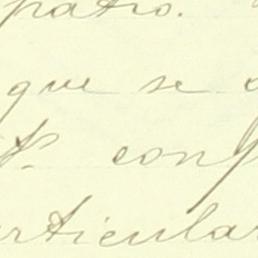 patro.
que se
P. conf
rticular